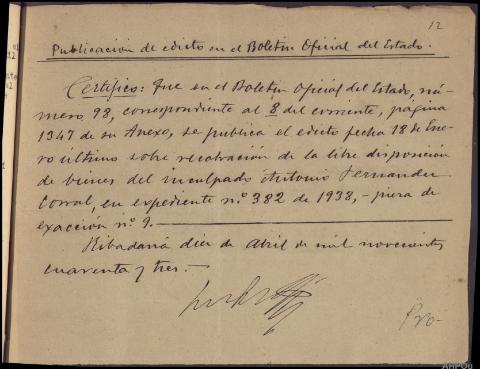 12
Publicación de edicto en el Boletin Oficial del Estado.
Certifico: Que en el Boletin Oficial del Estado, nú-
mero 98, correspondiente al 8 del corriente, página
1347 de su Anexo, se publica el edicto fecha 18 de Ene-
ro último sobre recobración de la libre disposición
de bienes del inculpado Antonio Fernandez
Corral, en expediente nº 382 de 1938, - pieza de
exacción nº 9.
Ribadavia diez de Abril de mil novecientos
cuarenta y tres.-
AHPOu